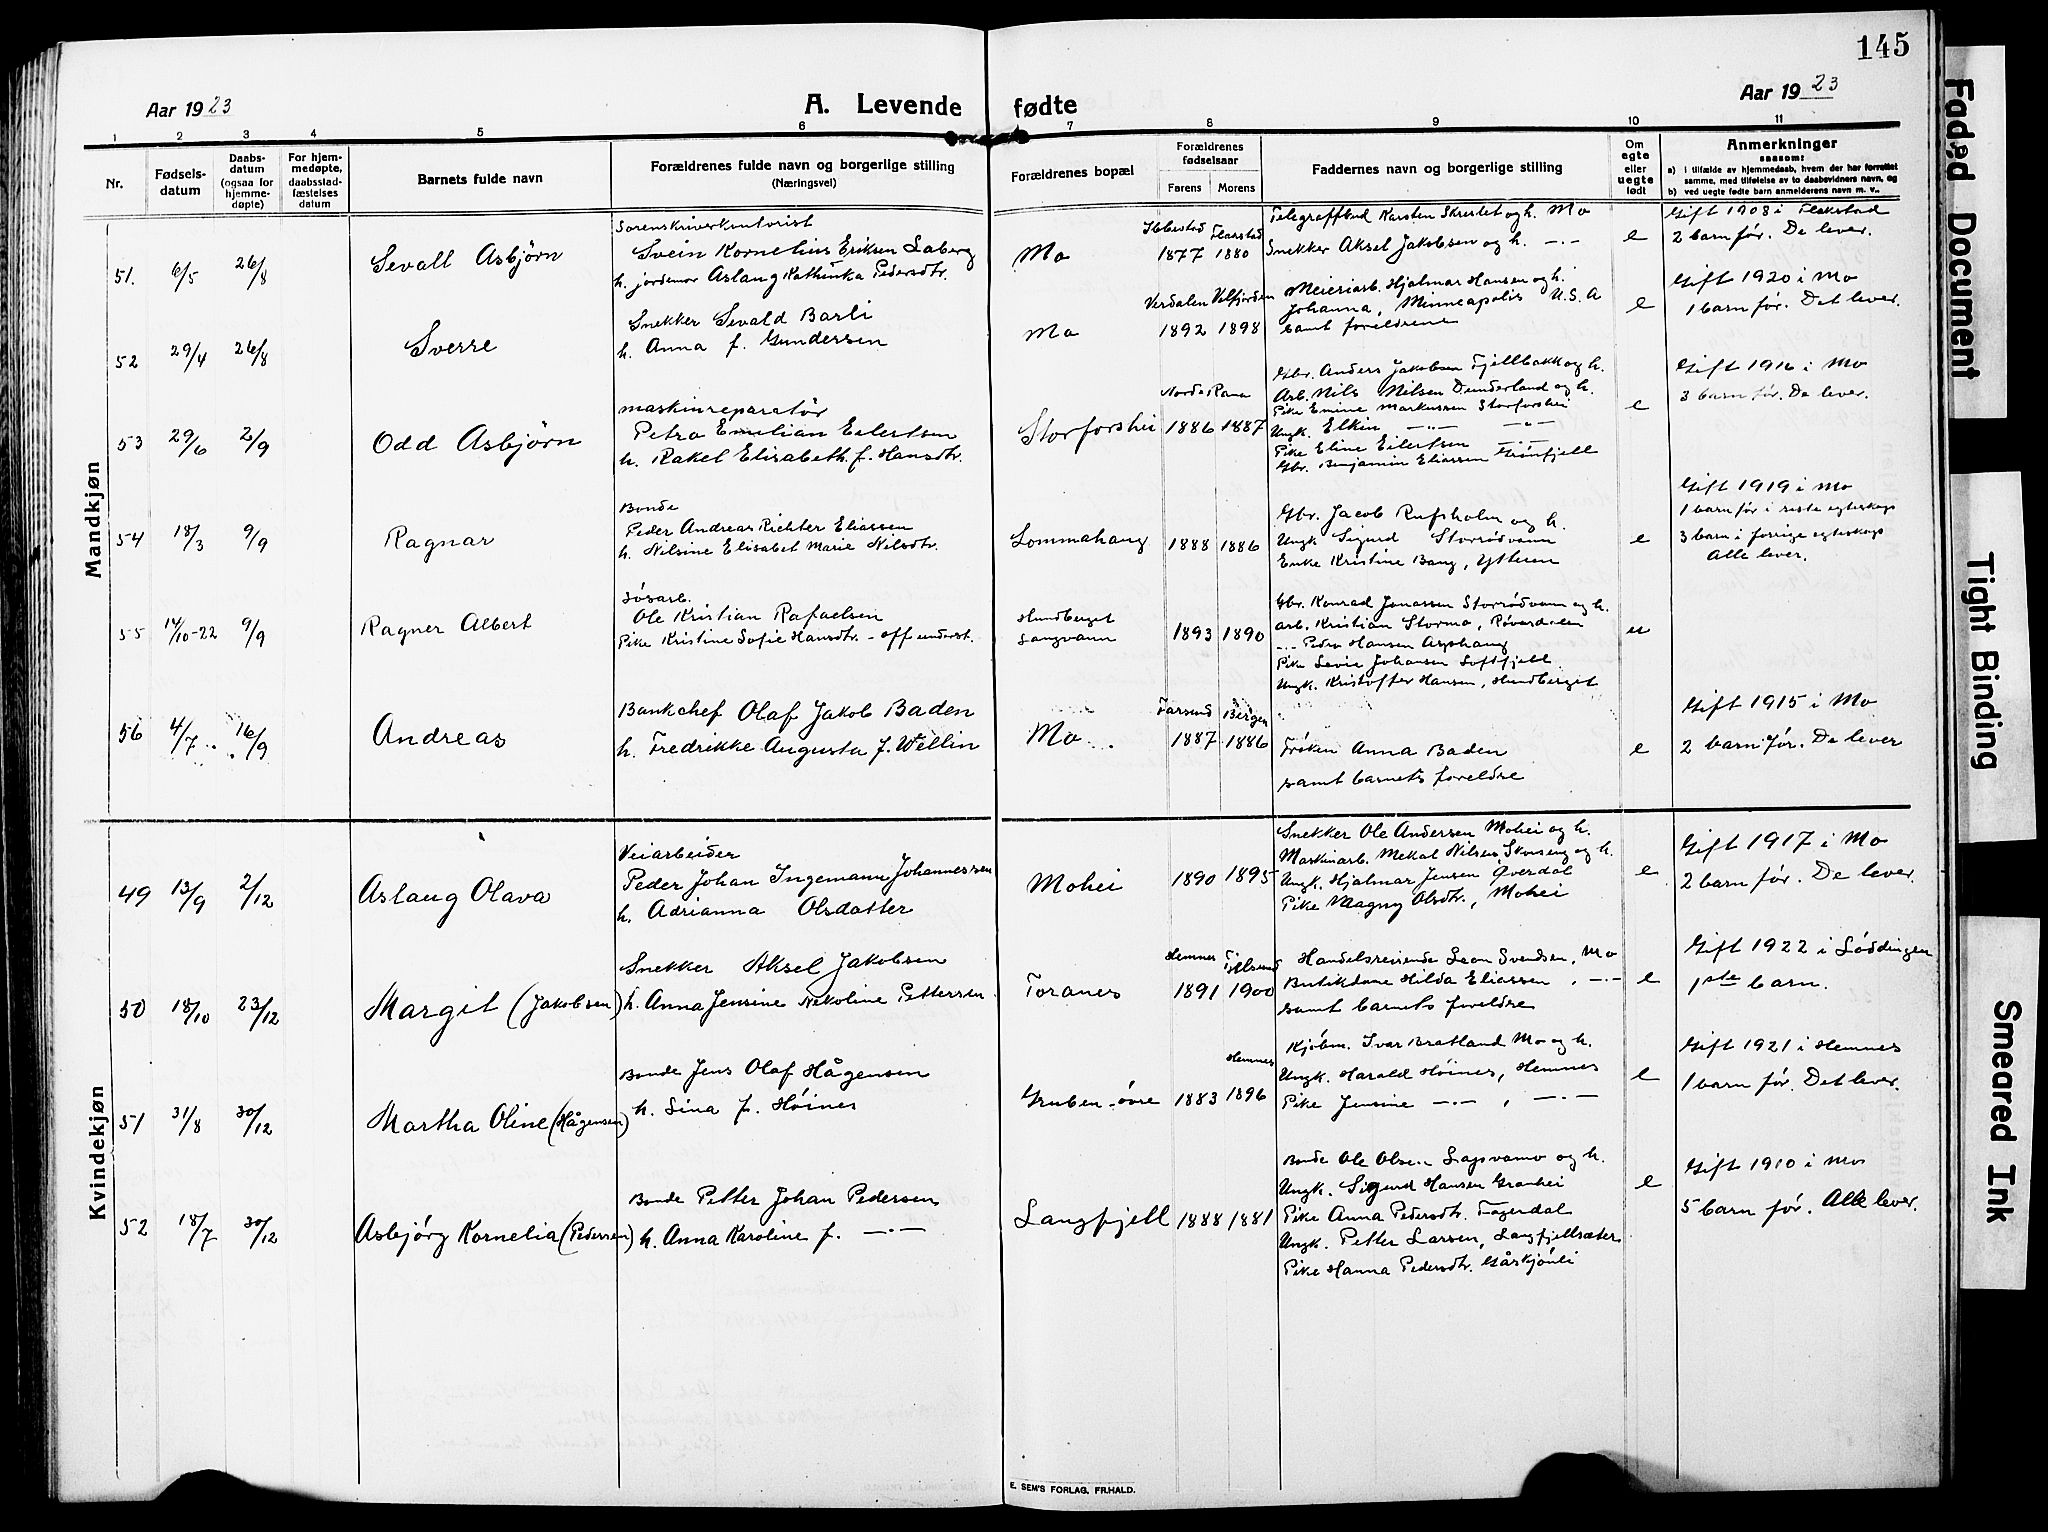 145
Aar 1923
A. Levende fødte
Aar 1923
1 2 3 4 5 6 7 8 9 10 11
Nr.
Fødsels-
datum
Daabs-
datum
(ogsaa for
hjemme-
døpte)
For hjem-
medøpte,
daabsstad-
fæstelses
datum
Barnets fulde navn
Forældrenes fulde navn og borgerlige stilling
(Næringsvei)
Forældrenes bopæl
Forældrenes
fødselsaar
Farens Morens
Faddernes navn og borgerlige stilling
Om
egte
eller
uegte
født
Anmerkninger
saasom:
a) i tilfælde av hjemmedaab, hvem der har forrettet
samme, med tilføielse av to daabsvidners navn, og
b) ved uegte fødte barn anmelderens navn m. v..
Mandkjøn
51. 6/5 26/8 Sevall Asbjörn
Sorenskriverkontorist
Svein Kornelius Eriksen Laberg
h. jordemor Aslaug Kathinka Pedersdtr.
Mo
Ibbestad Harstad
1877 1880
Telegrafbud Karsten Skrestet og h. Mo
Snekker Aksel Jakobsen og h. -.-
e
Gift 1908 i Flakstad
2 barn før. De lever.
52 29/4 26/8 Sverre
Snekker Sevald Barli
h. Anna f. Gundersen
Mo
Verdalen Velfjorden
1892 1898
Meieriarb. Hjalmar Hansen og h.
Johanna, Minneapolis U.S.A
samt foreldrene
e
Gift 1920 i Mo
1 barn før. Det lever.
53 29/6 2/9 Odd Asbjörn
maskinreparatör
Petro Emilian Eilertsen
h. Rakel Elisabeth f. Hansdtr.
Storforshei
Nordre Rana
1886 1887
Gbr. Anders Jakobsen Fjellbakk og h.
Arb. Nils Nilsen Dunderland og h.
Pike Emine Markussen Storforshei
Ungk. Elkin -..- -..-
Pike Eline Eilertsen -..-
Gbr. Benjamin Eliassen Grönfjell
e
Gift 1916 i Mo
3 barn før. De lever.
54 18/3 9/9 Ragnar
Bonde
Peder Andreas Richter Eliassen
h. Nilsine Elisabet Marie Nilsdtr.
Lommahaug
1888 1886
Gbr. Jacob Rufsholm og h.
Ungk. Sigurd Storrödvann
Enke Kristine Bang, Ytteren
e
Gift 1919 i Mo
1 barn før i siste egteskap
3 barn i forrige egteskap
Alle lever.
55 14/10-22 9/9 Ragner Albert
Ole Kristian Rafaelsen
Pike Kristine Sofie Hansdtr. - off. underst.
Hundberget
Langvann
1893 1890
Gbr. Konrad Jonassen Storrödvann og h.
arb. Kristian Stormo, Rövardalen
-.- Pedro Hansen
Pike Johansen Loftfjell
Ungk. Kristoffer Hansen, Hundberget
u
56 4/7 16/9 Andreas
Bankchef Olaf Jakob Baden
h. Fredrikke Augusta f. Wellin
Mo
Farsund Bergen
1887 1886
Fröken Anna Baden
samt barnets foreldre
e
Gift 1915 i Mo
2 barn før. De lever
Kvindekjøn
49 13/9 2/12 Aslaug Olava
Veiarbeider
Peder Johan Ingemann Johannessen
h. Adrianna Olsdatter
Mohei
1890 1895
Snekker Ole Andersen Mohei og h.
Maskinarb. Mekal Nilsen, Skonseng og h.
Ungk. Hjalmar Jensen Överdal
Pike Magny Olsdtr., Mohei
e
Gift 1917 i Mo
2 barn før. De lever.
50 18/10 23/12 Margit (Jakobsen)
Snekker Aksel Jakobsen
h. Anna Jensine Nekoline Pettersen
Toranes
Hemnes
1891 1900
Handelsreisende Leon Svendsen, Mo
Butikdame Hilda Eliassen, -.-
samt barnets foreldre
e
Gift 1922 i Löddingen
1ste barn.
51 31/8 30/12 Martha Oline (Hågensen)
Bonde Jens Olaf Hågensen
h. Lina f. Höines
Gruben övre
Hemnes
1883 1896
Kjöbm. Ivar Bratland Mo og h.
Ungk. Harald Höines, Hemnes
Pike Jensine -.- , -.-
e
Gift 1921 i Hemnes
1 barn før. Det lever.
52 18/7 30/12 Asbjörg Kornelia (Pedersen)
Bonde Petter Johan Pedersen
h. Anna Karoline f. -.-
Langfjell
1888 1881
Bonde Ole Olsen Lapvamo og h.
Ungk. Sigurd Hansen Granhei
Pike Anna Pedersdtr. Fagerdal
Ungk. Petter Larsen, Langfjellsæter
Pike Hanna Pedersdtr.
e
Gift 1910 i Mo
5 barn før. Alle lever.
E. SEM'S FORLAG, FR.HALD.
Faded Document
Tight Binding
Smeared Ink